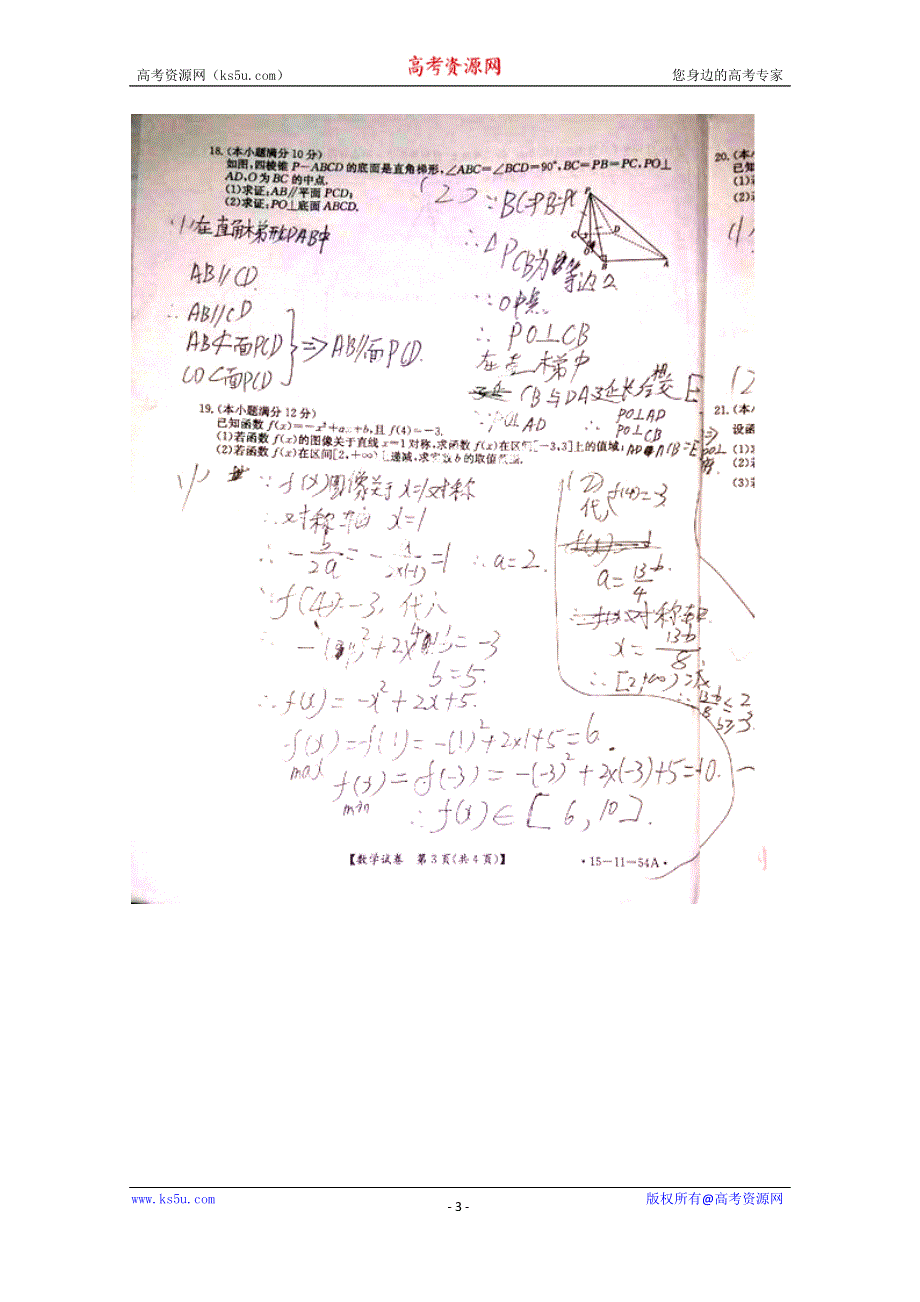 高考资源网（ks5u.com）
高考资源网
您身边的高考专家
18.(本小题满分10分)
如图,四棱锥P-ABCD的底面是直角梯形,∠ABC=∠BCD=90°,BC=PB=PC,PO⊥
AD,O为BC的中点.
(1)求证:AB∥平面PCD;
(2)求证:PO⊥底面ABCD.
(1)在直角梯形DAB中
AB∥CD.
∴AB∥CD
AB⊄面PCD
CD⊂面PCD
⇒AB∥面PCD.
(2)
∵BC=PB=PC
∴△PCB为等边△
∵O中点
∴PO⊥CB
CB与DA延长会相交E
∵PO⊥AD
∴PO⊥AD
PO⊥CB
19.(本小题满分12分)
已知函数f(x)=-x²+ax+b,且f(4)=-3.
(1)若函数f(x)的图像关于直线x=1对称,求函数f(x)在区间[-3,3]上的值域;
(2)若函数f(x)在区间[2,+∞)上递减,求实数b的取值范围.
(1)
∵f(x)图像关于x=1对称
∴对称轴x=1
∴-b/2a=-a/2×(-1)=1 ∴a=2.
∵f(4)=-3,代入
b=5.
∴f(x)=-x²+2x+5.
f(x)max=f(1)=-(1)²+2×1+5=6.
f(3)min=f(-3)=-(-3)²+2×(-3)+5=-10.
∴f(x)∈[6,10].
(2)
代f(4)=-3
a=13-b/4
对称轴
x=13-b/8
∴[2,+∞)减
∴13-b/8≤2
b≥-3
20.(本
已知
(1)
(2)
21.(本
设函
(1)
(2)
(3)
【数学试卷 第3页(共4页)】
·15-11-54A·
www.ks5u.com
- 3 -
版权所有@高考资源网